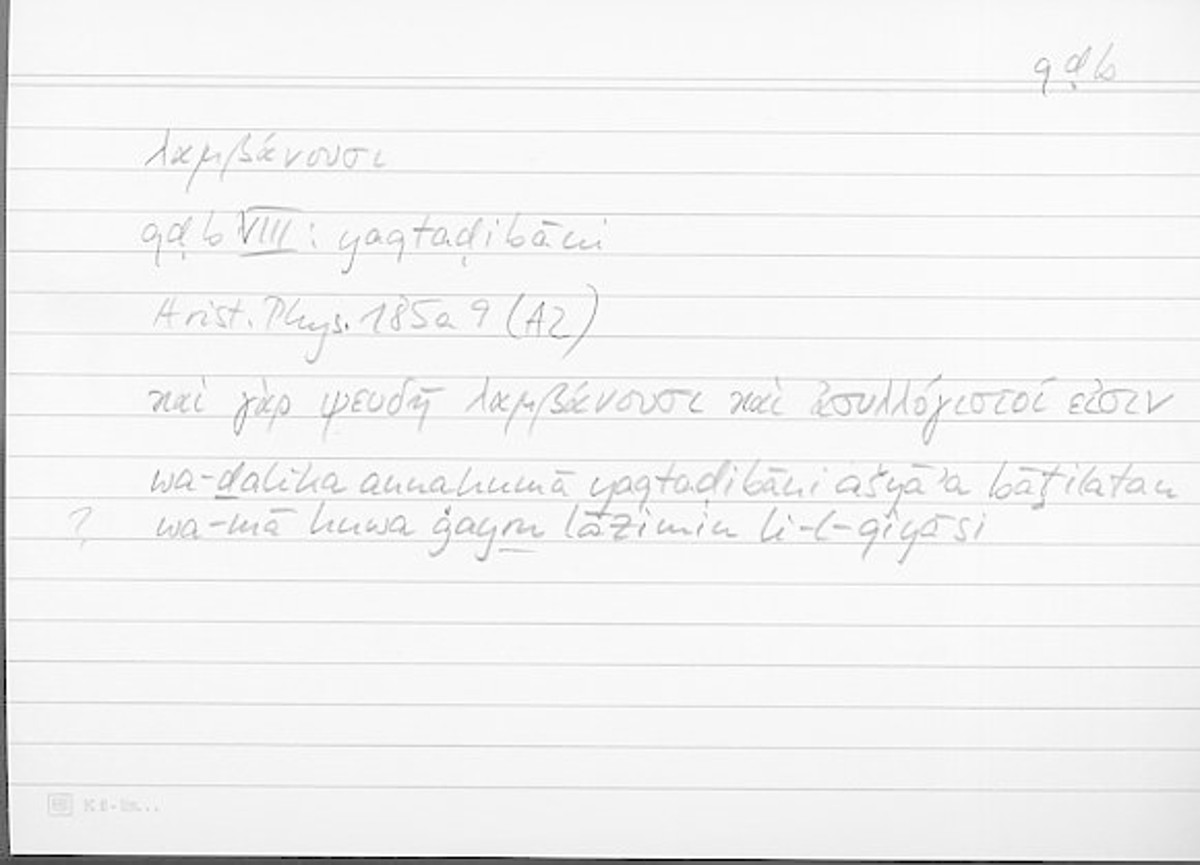 qḍb
λαμβάνουσι
qḍb VIII: yaqtaḍibāni
Arist. Phys. 185a 9 (A2)
καὶ γὰρ ψευδῆ λαμβάνουσι καὶ ἀσυλλόγιστοί εἰσιν
wa-ḏalika annahumā yaqtaḍibāni ašyāʾa bāṭilatan
? wa-mā huwa ġayru lāzimin li-l-qiyāsi